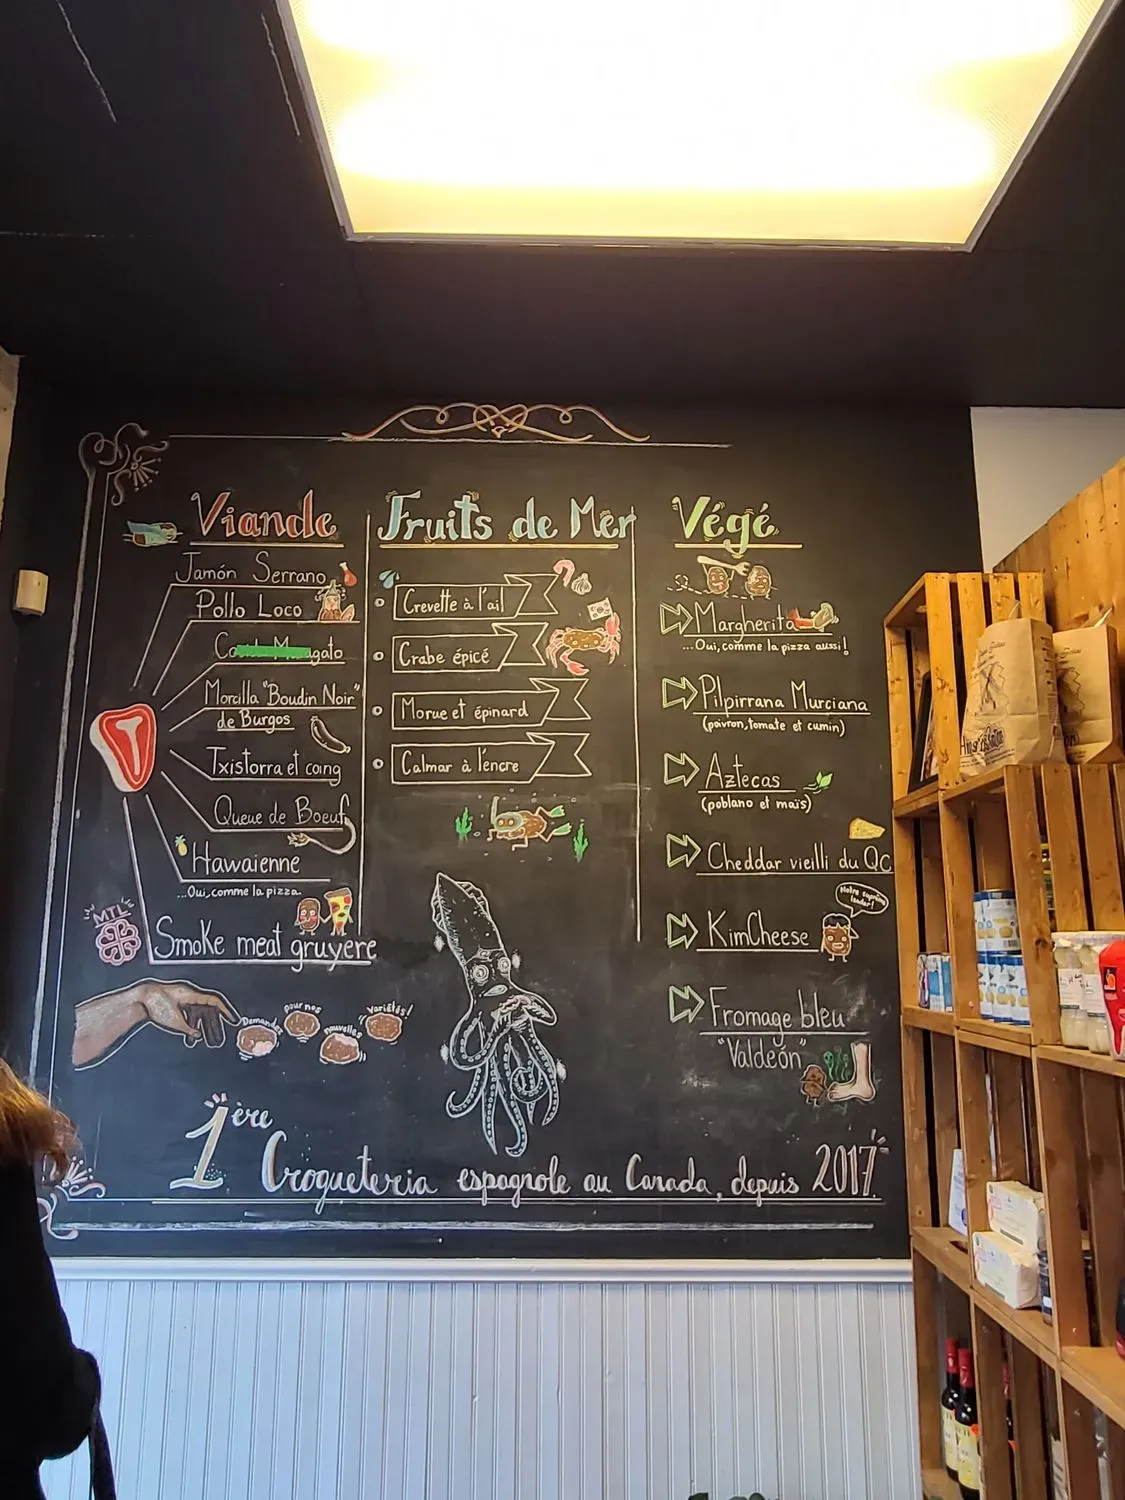 Viande
Jamón Serrano
Pollo Loco
gato
Morcilla "Boudin Noir"
de Burgos
Txistorra et coing
Queue de Boeuf
Hawaienne
...Oui, comme la pizza
MTL
Smoke meat gruyere
Demandez
pour nos
nouvelles
Variétés!
Fruits de Mer
Crevette à l'ail
Crabe épicé
Morue et épinard
Calmar à l'encre
Végé
Margherita
...Oui, comme la pizza aussi!
Pilpirrana Murciana
(poivron, tomate et cumin)
Aztecas
(poblano et maïs)
Cheddar vieilli du QC
Notre suprême
leader!
KimCheese
Fromage bleu
"Valdeón"
1ère Croqueteria espagnole au Canada, depuis 2017